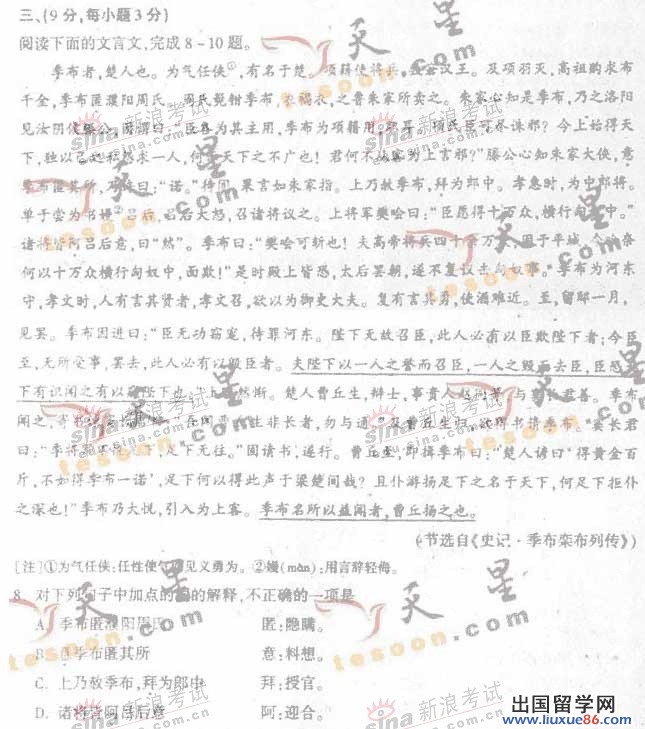 三、(9分,每小题3分)
阅读下面的文言文,完成8~10题。
季布者,楚人也。为气任侠①,有名于楚。项籍使将兵,汉王。及项羽灭,高祖购求布
千金,季布匿濮阳周氏。周氏髡钳季布,衣褐衣,之鲁朱家所卖之。朱家心知是季布,乃之洛阳
见汝阴侯滕公,因谓曰:“臣各为其主用,季布为项籍用,耳。项氏臣可尽诛邪?今上始得天
下,独以己之私怨求一人,何天下之不广也!君何不从容为上言邪?”滕公心知朱家大侠,意
季布匿其所,曰:“诺。”待间,果言如朱家指。上乃赦季布,拜为郎中。孝惠时,为中郎将。
单于尝为书嫚②吕后,吕后大怒,召诸将议之。上将军樊哙曰:“臣愿得十万众,横行匈奴中。”
诸将皆阿吕后意,曰“然”。季布曰:“樊哙可斩也!夫高帝将兵四十余万,困于平城,今哙奈
何以十万众横行匈奴中,面欺!”是时殿上皆恐,太后罢朝,遂不复议击匈奴事。季布为河东
守,孝文时,人有言其贤者,孝文召,欲以为御史大夫。复有言其勇,使酒难近。至,留邸一月,
见罢。季布因进曰:“臣无功窃宠,待罪河东。陛下无故召臣,此人必有以臣欺陛下者;今臣
至,无所受事,罢去,此人必有以毁臣者。夫陛下以一人之誉而召臣,一人之毁而去臣,臣恐
下有识闻之有以陛下也。”然惭。楚人曹丘生,辩士,事贵人赵同等,与长君善。季布
闻之,寄书长君曰:生非长者,勿与通。”及曹丘生归,欲得书请季布。窦长君
曰:“季将军不足下,足下无往。”固请书,遂行。曹丘至,即揖季布曰:“楚人谚曰‘得黄金百
斤,不如得季布一诺’,足下何以得此声于梁楚间哉?且仆游扬足下之名于天下,何足下拒仆
之深也!”季布乃大悦,引入为上客。季布名所以益闻者,曹丘扬之也。
(节选自《史记·季布栾布列传》)
[注]①为气任侠:任性使气,见义勇为。②嫚(màn):用言辞轻侮。
8. 对下列句子中加点的词的解释,不正确的一项是
A. 季布匿濮阳周氏 匿:隐瞒。
B. 意季布匿其所 意:料想。
C. 上乃赦季布,拜为郎中 拜:授官。
D. 诸将皆阿吕后意 阿:迎合。
天星
tesoon.com
sina新浪考试
出国留学网
www.liuxue86.com